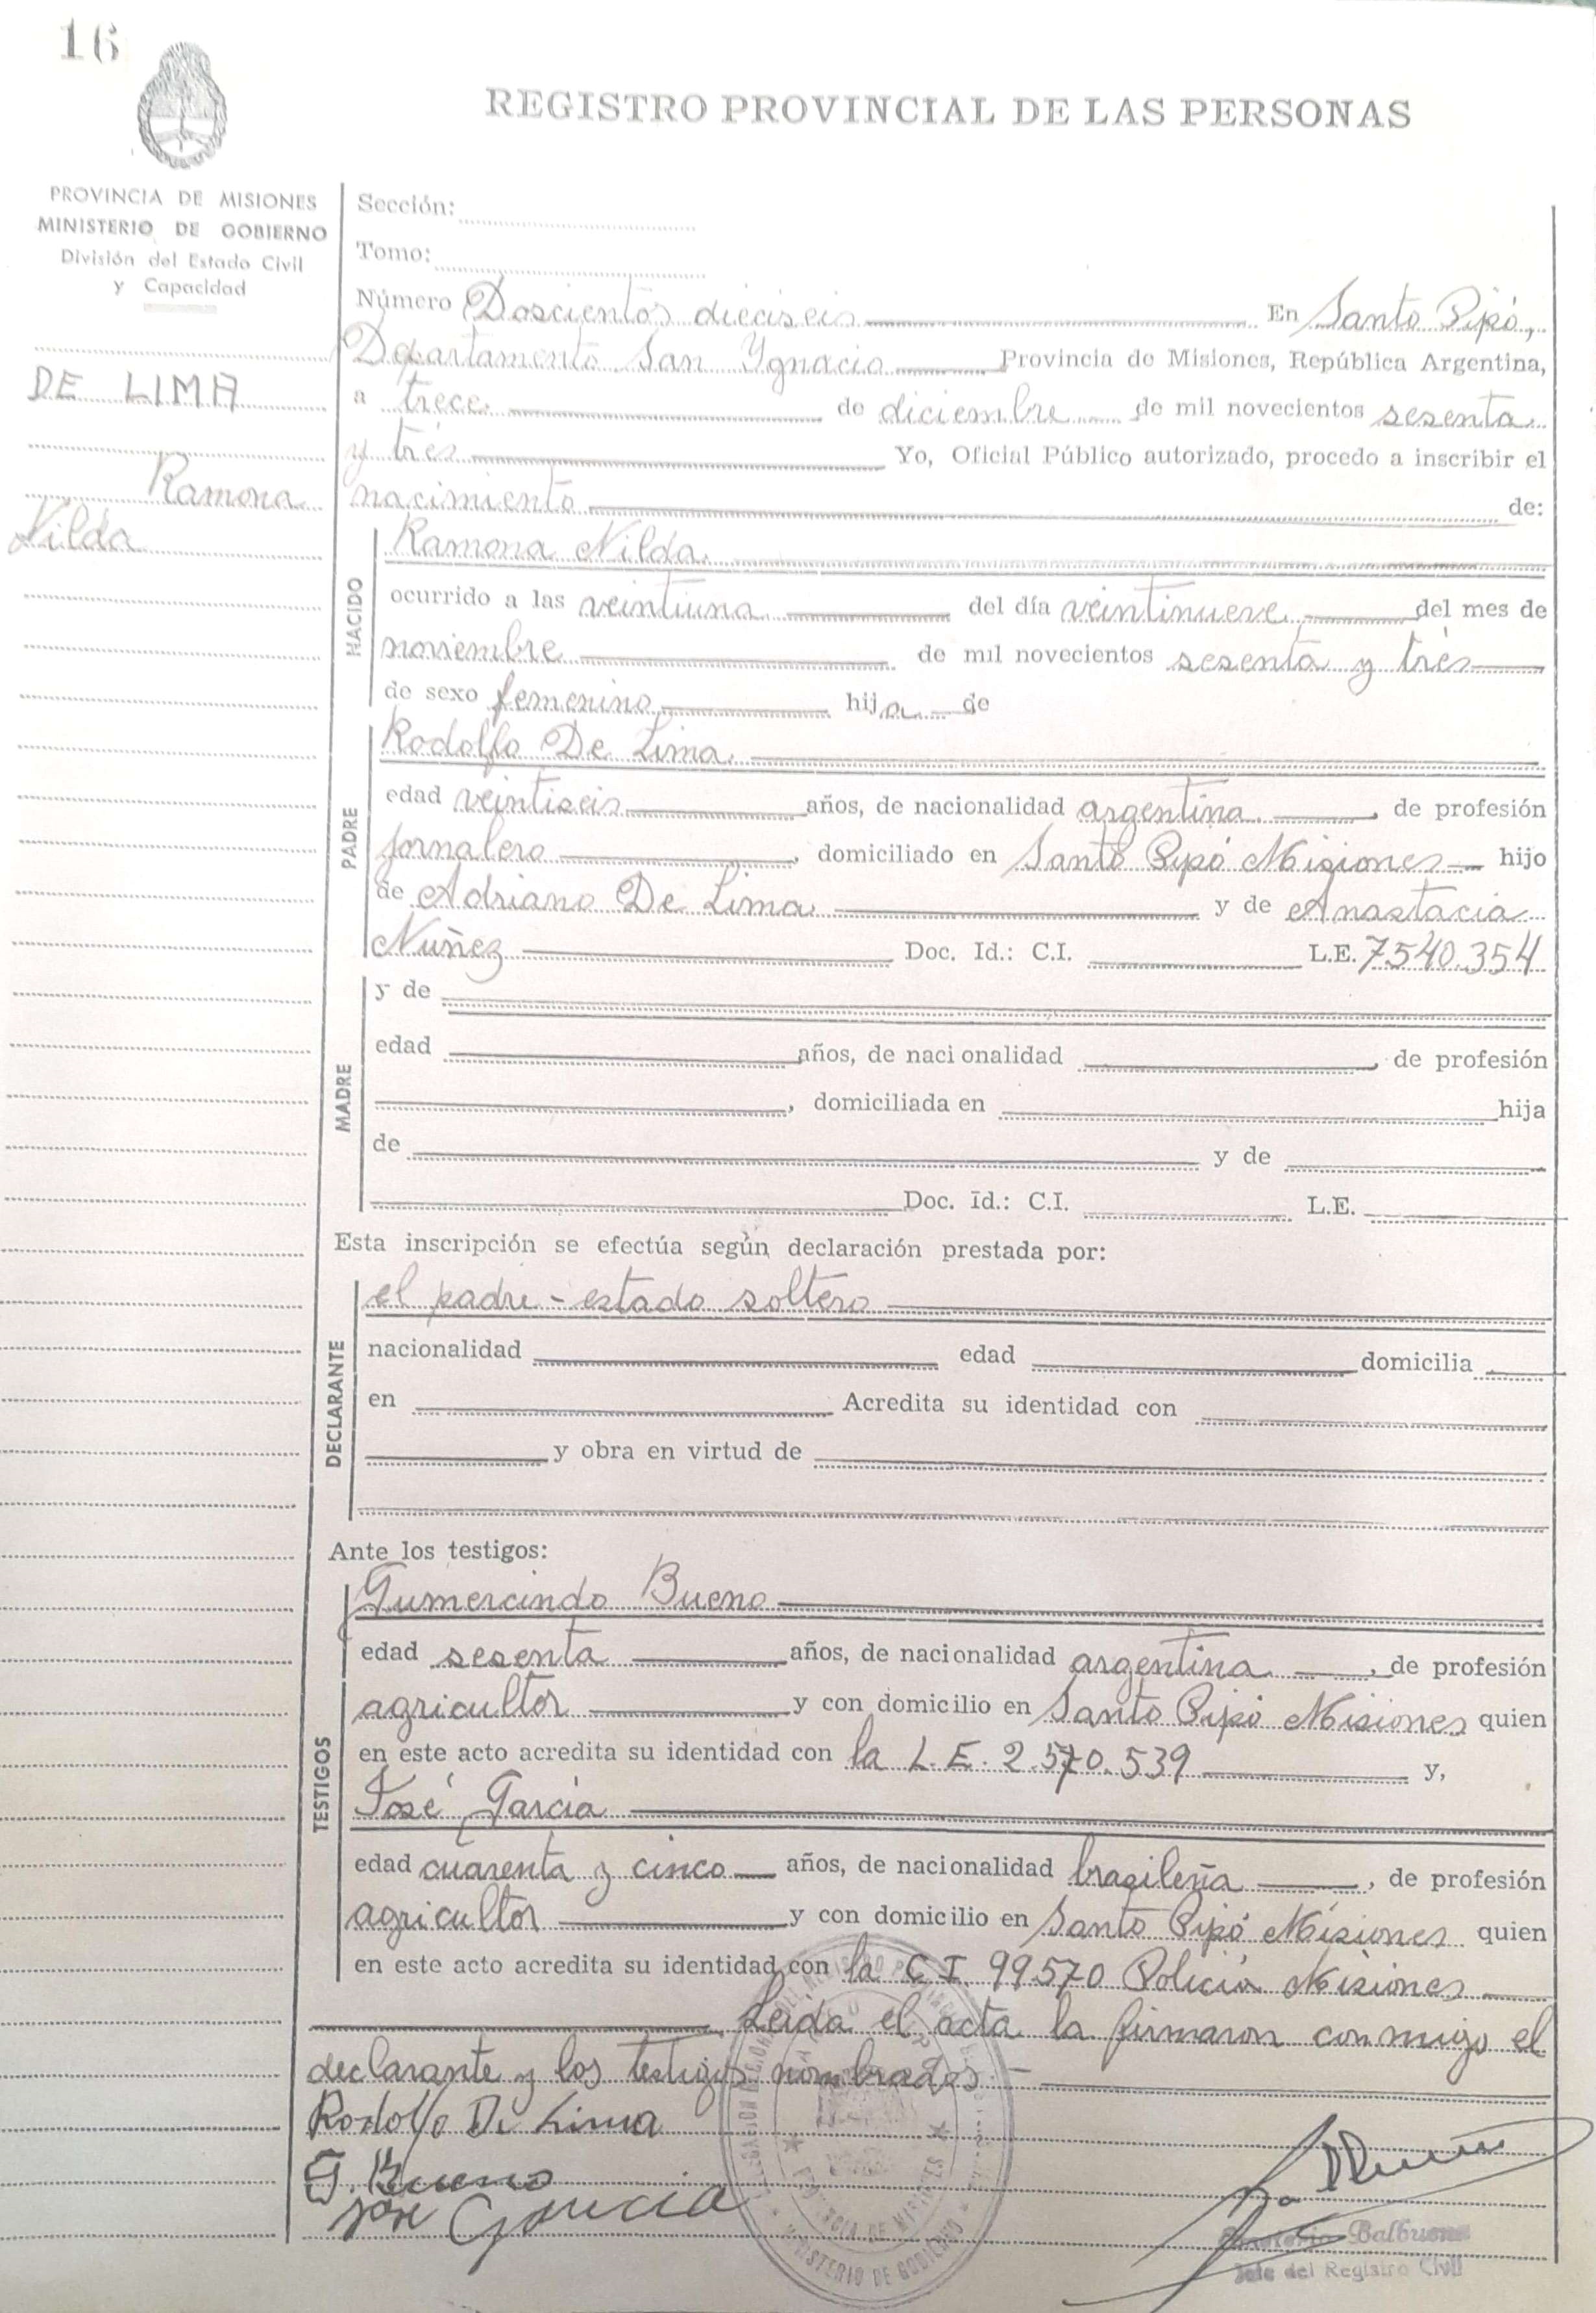 16
REGISTRO PROVINCIAL DE LAS PERSONAS
PROVINCIA DE MISIONES
MINISTERIO DE GOBIERNO
División del Estado Civil
y Capacidad
DE LIMA
Ramona
Nilda
Sección:
Tomo:
Número Doscientos dieciseis En Santo Pipó,
Departamento San Ygnacio Provincia de Misiones, República Argentina,
a trece de diciembre de mil novecientos sesenta
y trés Yo, Oficial Público autorizado, procedo a inscribir el
nacimiento de:
NACIDO
Ramona Nilda
ocurrido a las veintiuna del día veintinueve del mes de
noviembre de mil novecientos sesenta y trés
de sexo femenino hija de
PADRE
Rodolfo De Lima
edad veintiseis años, de nacionalidad argentina, de profesión
jornalero, domiciliado en Santo Pipó Misiones hijo
de Adriano De Lima y de Anastacia
Nuñez Doc. Id.: C.I. L.E. 7540.354
MADRE
y de
edad años, de nacionalidad, de profesión
, domiciliada en hija
de y de
Doc. Id.: C.I. L.E.
Esta inscripción se efectúa según declaración prestada por:
DECLARANTE
el padre - estado soltero
nacionalidad edad domicilia
en Acredita su identidad con
y obra en virtud de
Ante los testigos:
TESTIGOS
Gumercindo Bueno
edad sesenta años, de nacionalidad argentina, de profesión
agricultor y con domicilio en Santo Pipó Misiones quien
en este acto acredita su identidad con la L.E. 2.570.539 y,
José García
edad cuarenta y cinco años, de nacionalidad brasileña, de profesión
agricultor y con domicilio en Santo Pipó Misiones quien
en este acto acredita su identidad con la C.I. 99570 Policía Misiones
Leída el acta la firmaron conmigo el
declarante y los testigos nombrados -
Rodolfo De Lima
G. Bueno
José Garcia
Balbuena
Jefe del Registro Civil
MINISTERIO DE GOBIERNO
PROVINCIA DE MISIONES